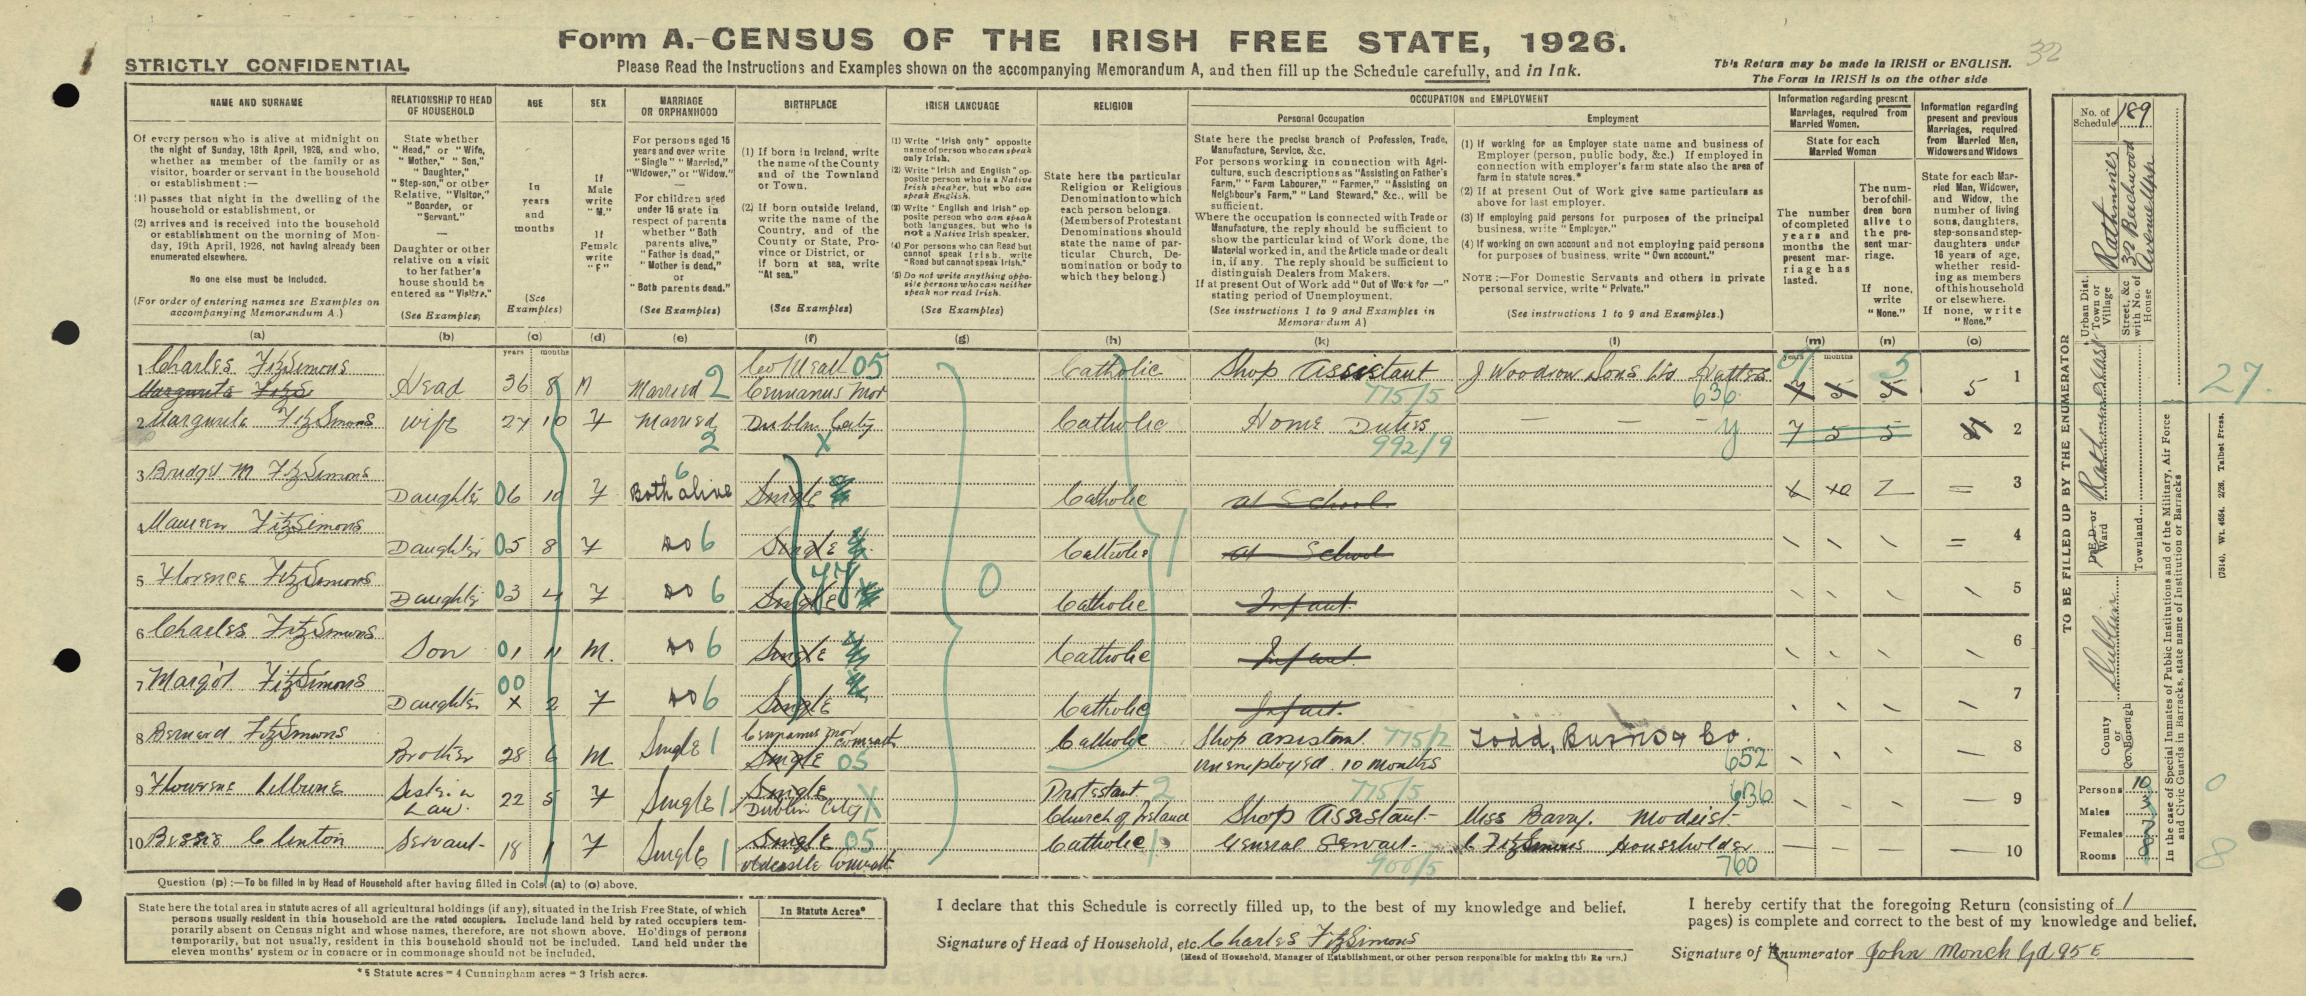 Form A.-CENSUS OF THE IRISH FREE STATE, 1926.
STRICTLY CONFIDENTIAL
Please Read the Instructions and Examples shown on the accompanying Memorandum A, and then fill up the Schedule carefully, and in Ink.
32
This Return may be made in IRISH or ENGLISH.
The Form in IRISH is on the other side
NAME AND SURNAME
Of every person who is alive at midnight on
the night of Sunday, 18th April, 1926, and who,
whether as member of the family or as
visitor, boarder or servant in the household
or establishment :—
(1) passes that night in the dwelling of the
household or establishment, or
(2) arrives and is received into the household
or establishment on the morning of Mon-
day, 19th April, 1926, not having already been
enumerated elsewhere.
No one else must be included.
(For order of entering names see Examples on
accompanying Memorandum A.)
(a)
RELATIONSHIP TO HEAD
OF HOUSEHOLD
State whether
"Head," or "Wife,
"Mother," "Son,"
"Daughter,"
"Step-son," or other
Relative, "Visitor,"
"Boarder, or
"Servant."
Daughter or other
relative on a visit
to her father's
house should be
entered as "Visitor."
(See Examples)
(b)
AGE
In
years
and
months
(See
Examples)
(c)
SEX
If
Male
write
"M."
If
Female
write
"F"
(d)
MARRIAGE
OR ORPHANHOOD
For persons aged 15
years and over write
"Single" "Married,"
"Widower," or "Widow."
For children aged
under 15 state in
respect of parents
whether "Both
parents alive,"
"Father is dead,"
"Mother is dead,"
or
"Both parents dead."
(See Examples)
(e)
BIRTHPLACE
(1) If born in Ireland, write
the name of the County
and of the Townland
or Town.
(2) If born outside Ireland,
write the name of the
Country, and of the
County or State, Pro-
vince or District, or
if born at sea, write
"At sea."
(See Examples)
(f)
IRISH LANGUAGE
(1) Write "Irish only" opposite
name of person who can speak
only Irish.
(2) Write "Irish and English" op-
posite person who is a Native
Irish speaker, but who can
speak English.
(3) Write "English and Irish" op-
posite person who can speak
both languages, but who is
not a Native Irish speaker.
(4) For persons who can Read but
cannot speak Irish, write
"Read but cannot speak Irish."
(5) Do not write anything oppo-
site persons who can neither
speak nor read Irish.
(See Examples)
(g)
RELIGION
State here the particular
Religion or Religious
Denomination to which
each person belongs.
(Members of Protestant
Denominations should
state the name of par-
ticular Church, De-
nomination or body to
which they belong.)
(h)
OCCUPATION and EMPLOYMENT
Personal Occupation
State here the precise branch of Profession, Trade,
Manufacture, Service, &c.
For persons working in connection with Agri-
culture, such descriptions as "Assisting on Father's
Farm," "Farm Labourer," "Farmer," "Assisting on
Neighbour's Farm," "Land Steward," &c., will be
sufficient.
Where the occupation is connected with Trade or
Manufacture, the reply should be sufficient to
show the particular kind of Work done, the
Material worked in, and the Article made or dealt
in, if any. The reply should be sufficient to
distinguish Dealers from Makers.
If at present Out of Work add "Out of Work for —"
stating period of Unemployment.
(See instructions 1 to 9 and Examples in
Memorandum A)
(k)
Employment
(1) If working for an Employer state name and business of
Employer (person, public body, &c.) If employed in
connection with employer's farm state also the area of
farm in statute acres.*
(2) If at present Out of Work give same particulars as
above for last employer.
(3) If employing paid persons for purposes of the principal
business, write "Employer."
(4) If working on own account and not employing paid persons
for purposes of business, write "Own account."
NOTE :—For Domestic Servants and others in private
personal service, write "Private."
(See instructions 1 to 9 and Examples.)
(l)
Information regarding present
Marriages, required from
Married Women.
State for each
Married Woman
The number
of completed
years and
months the
present mar-
riage has
lasted.
(m)
The num-
ber of child-
ren born
alive to
the pre-
sent mar-
riage.
If none,
write
"None."
(n)
Information regarding
present and previous
Marriages, required
from Married Men,
Widowers and Widows
State for each Mar-
ried Man, Widower,
and Widow, the
number of living
sons, daughters,
step-sons and step-
daughters under
16 years of age,
whether resid-
ing as members
of this household
or elsewhere.
If none, write
"None."
(o)
years months
years months
1 Charles FitzSimons Head 36 8 M Married 2 Co Meath 05 Catholic Shop Assistant 775/5 J Woodrow Sons Ltd Hatters 636 7 5 5 5 1
2 Marguerite FitzSimons Wife 27 10 F Married 2 Dublin City X Catholic Home Duties 992/9 — — — y 7 5 5 4 2
3 Bridget M FitzSimons Daughter 06 10 F Both alive 6 Single Catholic at School 3
4 Maureen FitzSimons Daughter 05 8 F do 6 Single Catholic at School 4
5 Florence FitzSimons Daughter 03 4 F do 6 Single Catholic Infant 0 5
6 Charles FitzSimons Son 01 11 M. do 6 Single Catholic Infant 6
7 Margot FitzSimons Daughter 00 x 2 F do 6 Single Catholic Infant 7
8 Bernard FitzSimons Brother 28 6 M. Single 1 Co Meath Single 05 Catholic Shop Assistant 775/2 unemployed 10 months Todd, Burns & Co. 652 8
9 Sister in Law. 22 5 F Single 1 Single Dublin City X Protestant 2 Church of Ireland 775/5 Shop Assistant Miss Barry. Modist 636 9
10 Bessie Clinton Servant 18 1 F Single 1 Single 05 Oldcastle Co Meath Catholic General Servant 900/5 C FitzSimons Householder 760 10
Question (p) :—To be filled in by Head of Household after having filled in Cols. (a) to (o) above.
State here the total area in statute acres of all agricultural holdings (if any), situated in the Irish Free State, of which
persons usually resident in this household are the rated occupiers. Include land held by rated occupiers tem-
porarily absent on Census night and whose names, therefore, are not shown above. Holdings of persons
temporarily, but not usually, resident in this household should not be included. Land held under the
eleven months' system or in conacre or in commonage should not be included.
In Statute Acres*
*5 Statute acres = 4 Cunningham acres = 3 Irish acres.
I declare that this Schedule is correctly filled up, to the best of my knowledge and belief.
Signature of Head of Household, etc. Charles FitzSimons
(Head of Household, Manager of Establishment, or other person responsible for making this Return.)
I hereby certify that the foregoing Return (consisting of 1
pages) is complete and correct to the best of my knowledge and belief.
Signature of Enumerator John Gd 95 E
TO BE FILLED UP BY THE ENUMERATOR
No. of Schedule 189
Urban Dist. Town or Village Rathmines
Street, &c with No. of House 32 Beechwood Avenue Upr
D.E.D. or Ward Rathmines East
Townland
County or Co. Borough Dublin
Persons 10
Males 3
Females 7
Rooms 8
In the case of Special Inmates of Public Institutions and of the Military, Air Force
and Civic Guards in Barracks, state name of Institution or Barracks
27.
0
8
(7514). Wt. 4654. 2/26. Talbot Press.